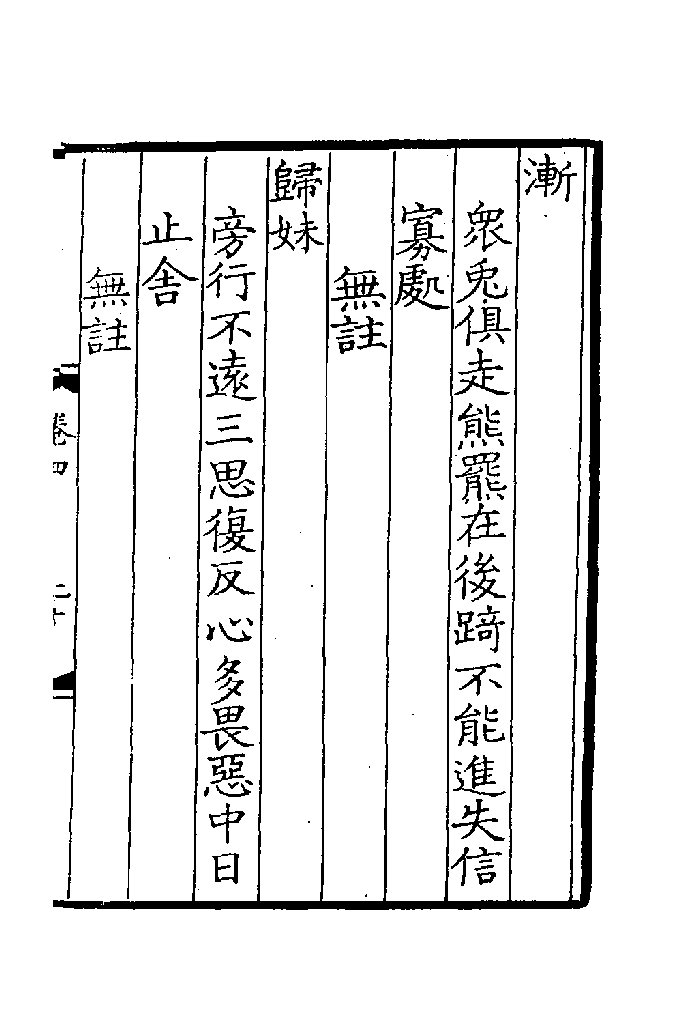 漸
衆兎俱走熊羆在後踦不能進失信
寡處
無註
歸妹
旁行不遠三思復反心多畏惡中日
止舍
無註
卷四
二十